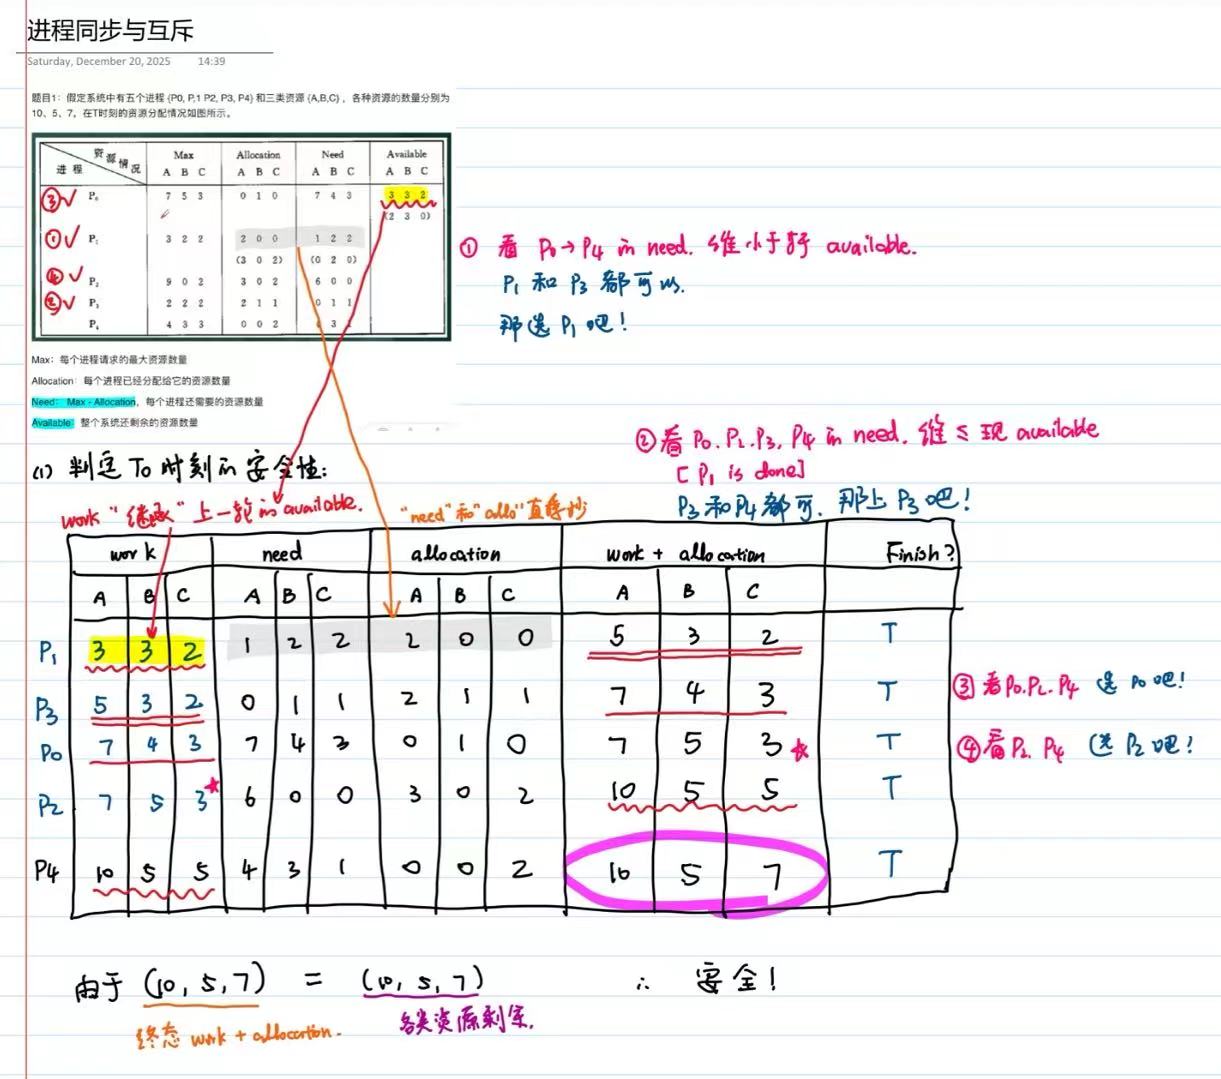 进程同步与互斥
Saturday, December 20, 2025 14:39
题目1：假定系统中有五个进程 {P0, P,1 P2, P3, P4} 和三类资源 {A,B,C}，各种资源的数量分别为
10、5、7，在T时刻的资源分配情况如图所示。
资源情况 Max Allocation Need Available
进程 A B C A B C A B C A B C
③✓ P₀ 7 5 3 0 1 0 7 4 3 3 3 2
(2 3 0)
①✓ P₁ 3 2 2 2 0 0 1 2 2
(3 0 2) (0 2 0)
④✓ P₂ 9 0 2 3 0 2 6 0 0
②✓ P₃ 2 2 2 2 1 1 0 1 1
P₄ 4 3 3 0 0 2 3
① 看 P₀→P₄ 的 need. 谁小于等于 available.
P₁ 和 P₃ 都可以.
那选 P₁ 吧！
Max：每个进程请求的最大资源数量
Allocation：每个进程已经分配给它的资源数量
Need： Max - Allocation，每个进程还需要的资源数量
Available：整个系统还剩余的资源数量
② 看 P₀. P₂. P₃, P₄ 的 need. 谁 ≤ 现 available
[ P₁ is done]
P₃ 和 P₄ 都可. 那上 P₃ 吧！
(1) 判定 T₀ 时刻的安全性：
work "继承" 上一轮的 available.
"need"和"allo"直接抄
work need allocation work + allocation Finish?
A B C A B C A B C A B C
P₁ 3 3 2 1 2 2 2 0 0 5 3 2 T
P₃ 5 3 2 0 1 1 2 1 1 7 4 3 T
③ 看 P₀.P₂.P₄ 选 P₀ 吧！
P₀ 7 4 3 7 4 3 0 1 0 7 5 3 ★ T
④ 看 P₂. P₄ 选 P₂ 吧！
P₂ 7 5 3 ★ 6 0 0 3 0 2 10 5 5 T
P₄ 10 5 5 4 3 1 0 0 2 10 5 7 T
由于 (10, 5, 7) = (10, 5, 7) ∴ 安全！
终态 work + allocation.
各类资源剩余.